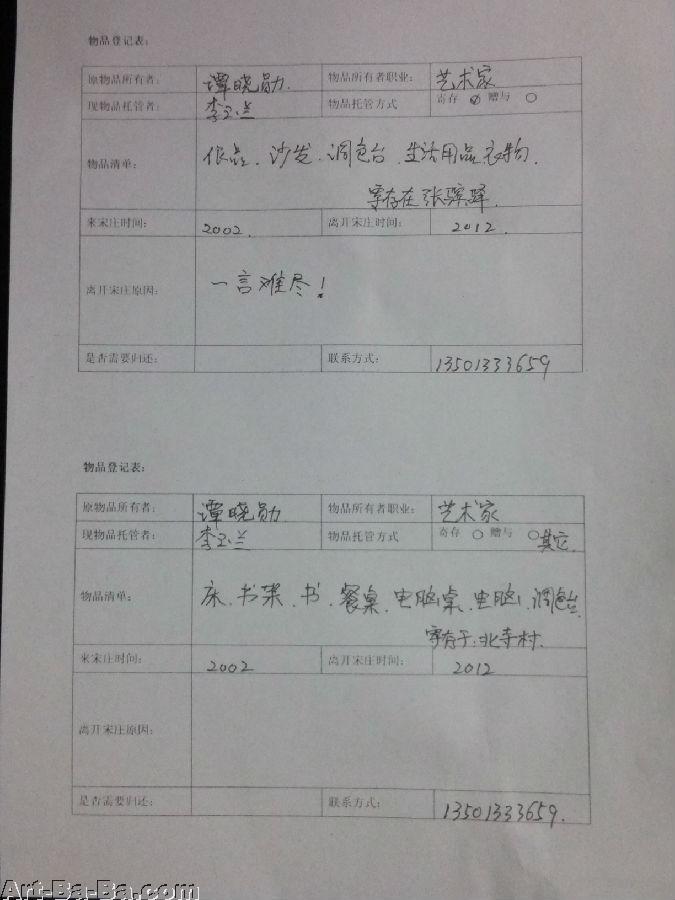 物品登记表:
原物品所有者: 谭晓勋. 物品所有者职业: 艺术家
现物品托管者: 李玉兰 物品托管方式 寄存 ☑ 赠与 ○
物品清单: 作品、沙发、调色台、生活用品衣物.
寄存在张骥驿.
来宋庄时间: 2002. 离开宋庄时间: 2012.
离开宋庄原因: 一言难尽!
是否需要归还: 联系方式: 13501333659
物品登记表:
原物品所有者: 谭晓勋. 物品所有者职业: 艺术家
现物品托管者: 李玉兰 物品托管方式 寄存 ○ 赠与 ○ 其它.
物品清单: 床、书架、书、餐桌、电脑桌、电脑、调色台
寄存于:北寺村.
来宋庄时间: 2002 离开宋庄时间: 2012
离开宋庄原因:
是否需要归还: 联系方式: 13501333659.
Art-Ba-Ba.com